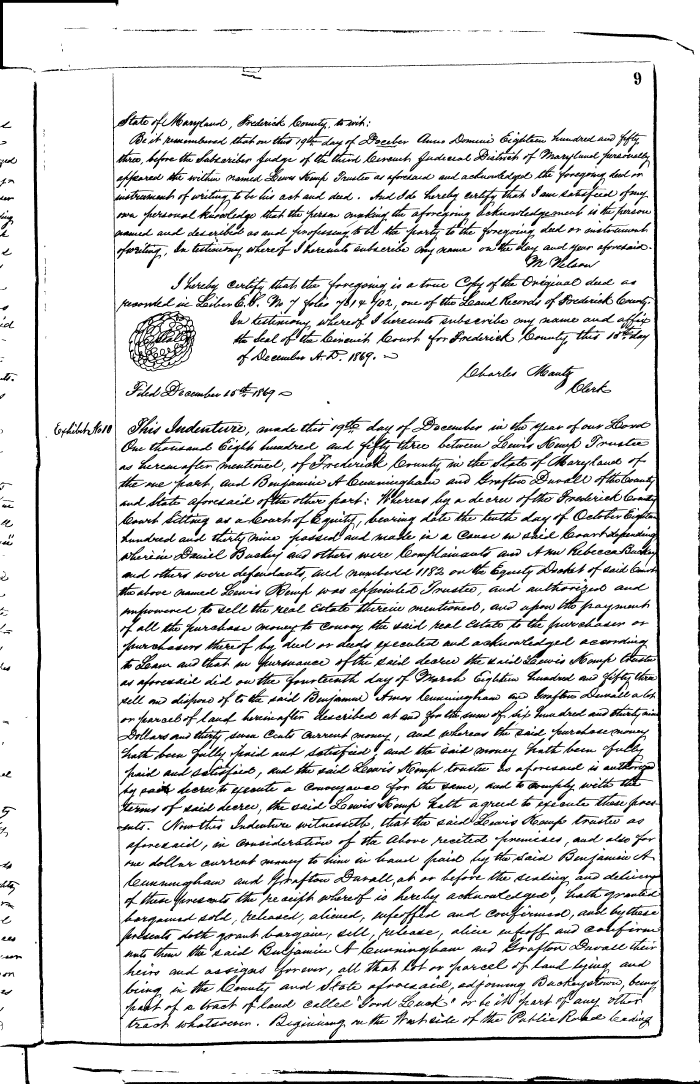 9
State of Maryland, Frederick County, to wit:
Be it remembered that on this 19th day of Deceber Anno Domini Eighteen hundred and fifty
three, before the Subscriber Judge of the third Circuit Judicial District of Maryland personally
appeared the within named Lewis Kemp Trustee as aforesaid and acknowledged the foregoing deed or
instrument of writing to be his act and deed. And I do hereby certify that I am satisfied of my
own personal knowledge that the person making the aforegoing acknowledgement is the person
named and described as and professing to be the party to the foregoing deed or instrument
of writing. In testimony whereof I hereunto subscribe my name on the day and year aforesaid.
M Nelson
I hereby certify that the foregoing is a true Copy of the Original deed as
recorded in Liber E.S. No 7 folio 781 & 792, one of the Land Records of Frederick County.
In testimony whereof I hereunto subscribe my name and affix
the Seal of the Circuit Court for Frederick County this 15th day
of December A.D. 1869.
Charles Mantz
Clerk
Filed December 15th 1869
Exhibit No 10
This Indenture, made this 19th day of December in the year of our Lord
One thousand Eight hundred and fifty three between Lewis Kemp Trustee
as hereafter mentioned, of Frederick County in the State of Maryland of
the one part, and Benjamin A Cunningham and Grafton Duvall of the County
and State aforesaid of the other part: Whereas by a decree of the Frederick County
Court Sitting as a Court of Equity, bearing date the tenth day of October Eighteen
hundred and thirty nine passed and made in a Cause in said Court depending
wherein Daniel Buckey and others were Complainants and Ann Rebecca Buckey
and others were defendants, and numbered 1182 on the Equity Docket of said Court
the above named Lewis Kemp was appointed Trustee, and authorized and
empowered to sell the real Estate therein mentioned, and upon the payment
of all the purchase money to convey the said real Estate to the purchaser or
purchasers thereof by deed or deeds executed and acknowledged according
to Law and that in pursuance of the said decree the said Lewis Kemp trustee
as aforesaid did on the fourteenth day of March Eighteen hundred and fifty three
sell on dispose of to the said Benjamin Amos Cunningham and Grafton Duvall a lot
or parcel of land hereinafter described at and for the sum of six hundred and thirty nine
Dollars and thirty seven Cents current money, and whereas the said purchase money
hath been fully paid and satisfied and the said money hath been fully
paid and satisfied, and the said Lewis Kemp trustee as aforesaid is authorized
by said decree to execute a conveyance for the same, and to comply with the
terms of said decree, the said Lewis Kemp hath agreed to execute these pres-
ents. Now this Indenture witnesseth, that the said Lewis Kemp trustee as
aforesaid, in consideration of the above recited premises, and also for
one dollar current money to him in hand paid by the said Benjamin A
Cunningham and Grafton Duvall, at or before the sealing and delivery
of these presents the receipt whereof is hereby acknowledged, hath granted
bargained sold, released, aliened, enfeoffed and confirmed, and by these
presents doth grant bargain, sell, release, alien enfeoff and confirm
unto them the said Benjamin A Cunningham and Grafton Duvall their
heirs and assigns forever, all that lot or parcel of land lying and
being in the County and State aforesaid, adjoining Buckeystown, being
part of a tract of land called "Good Luck" or be it part of any other
tract whatsoever. Beginning on the West side of the Public Road leading